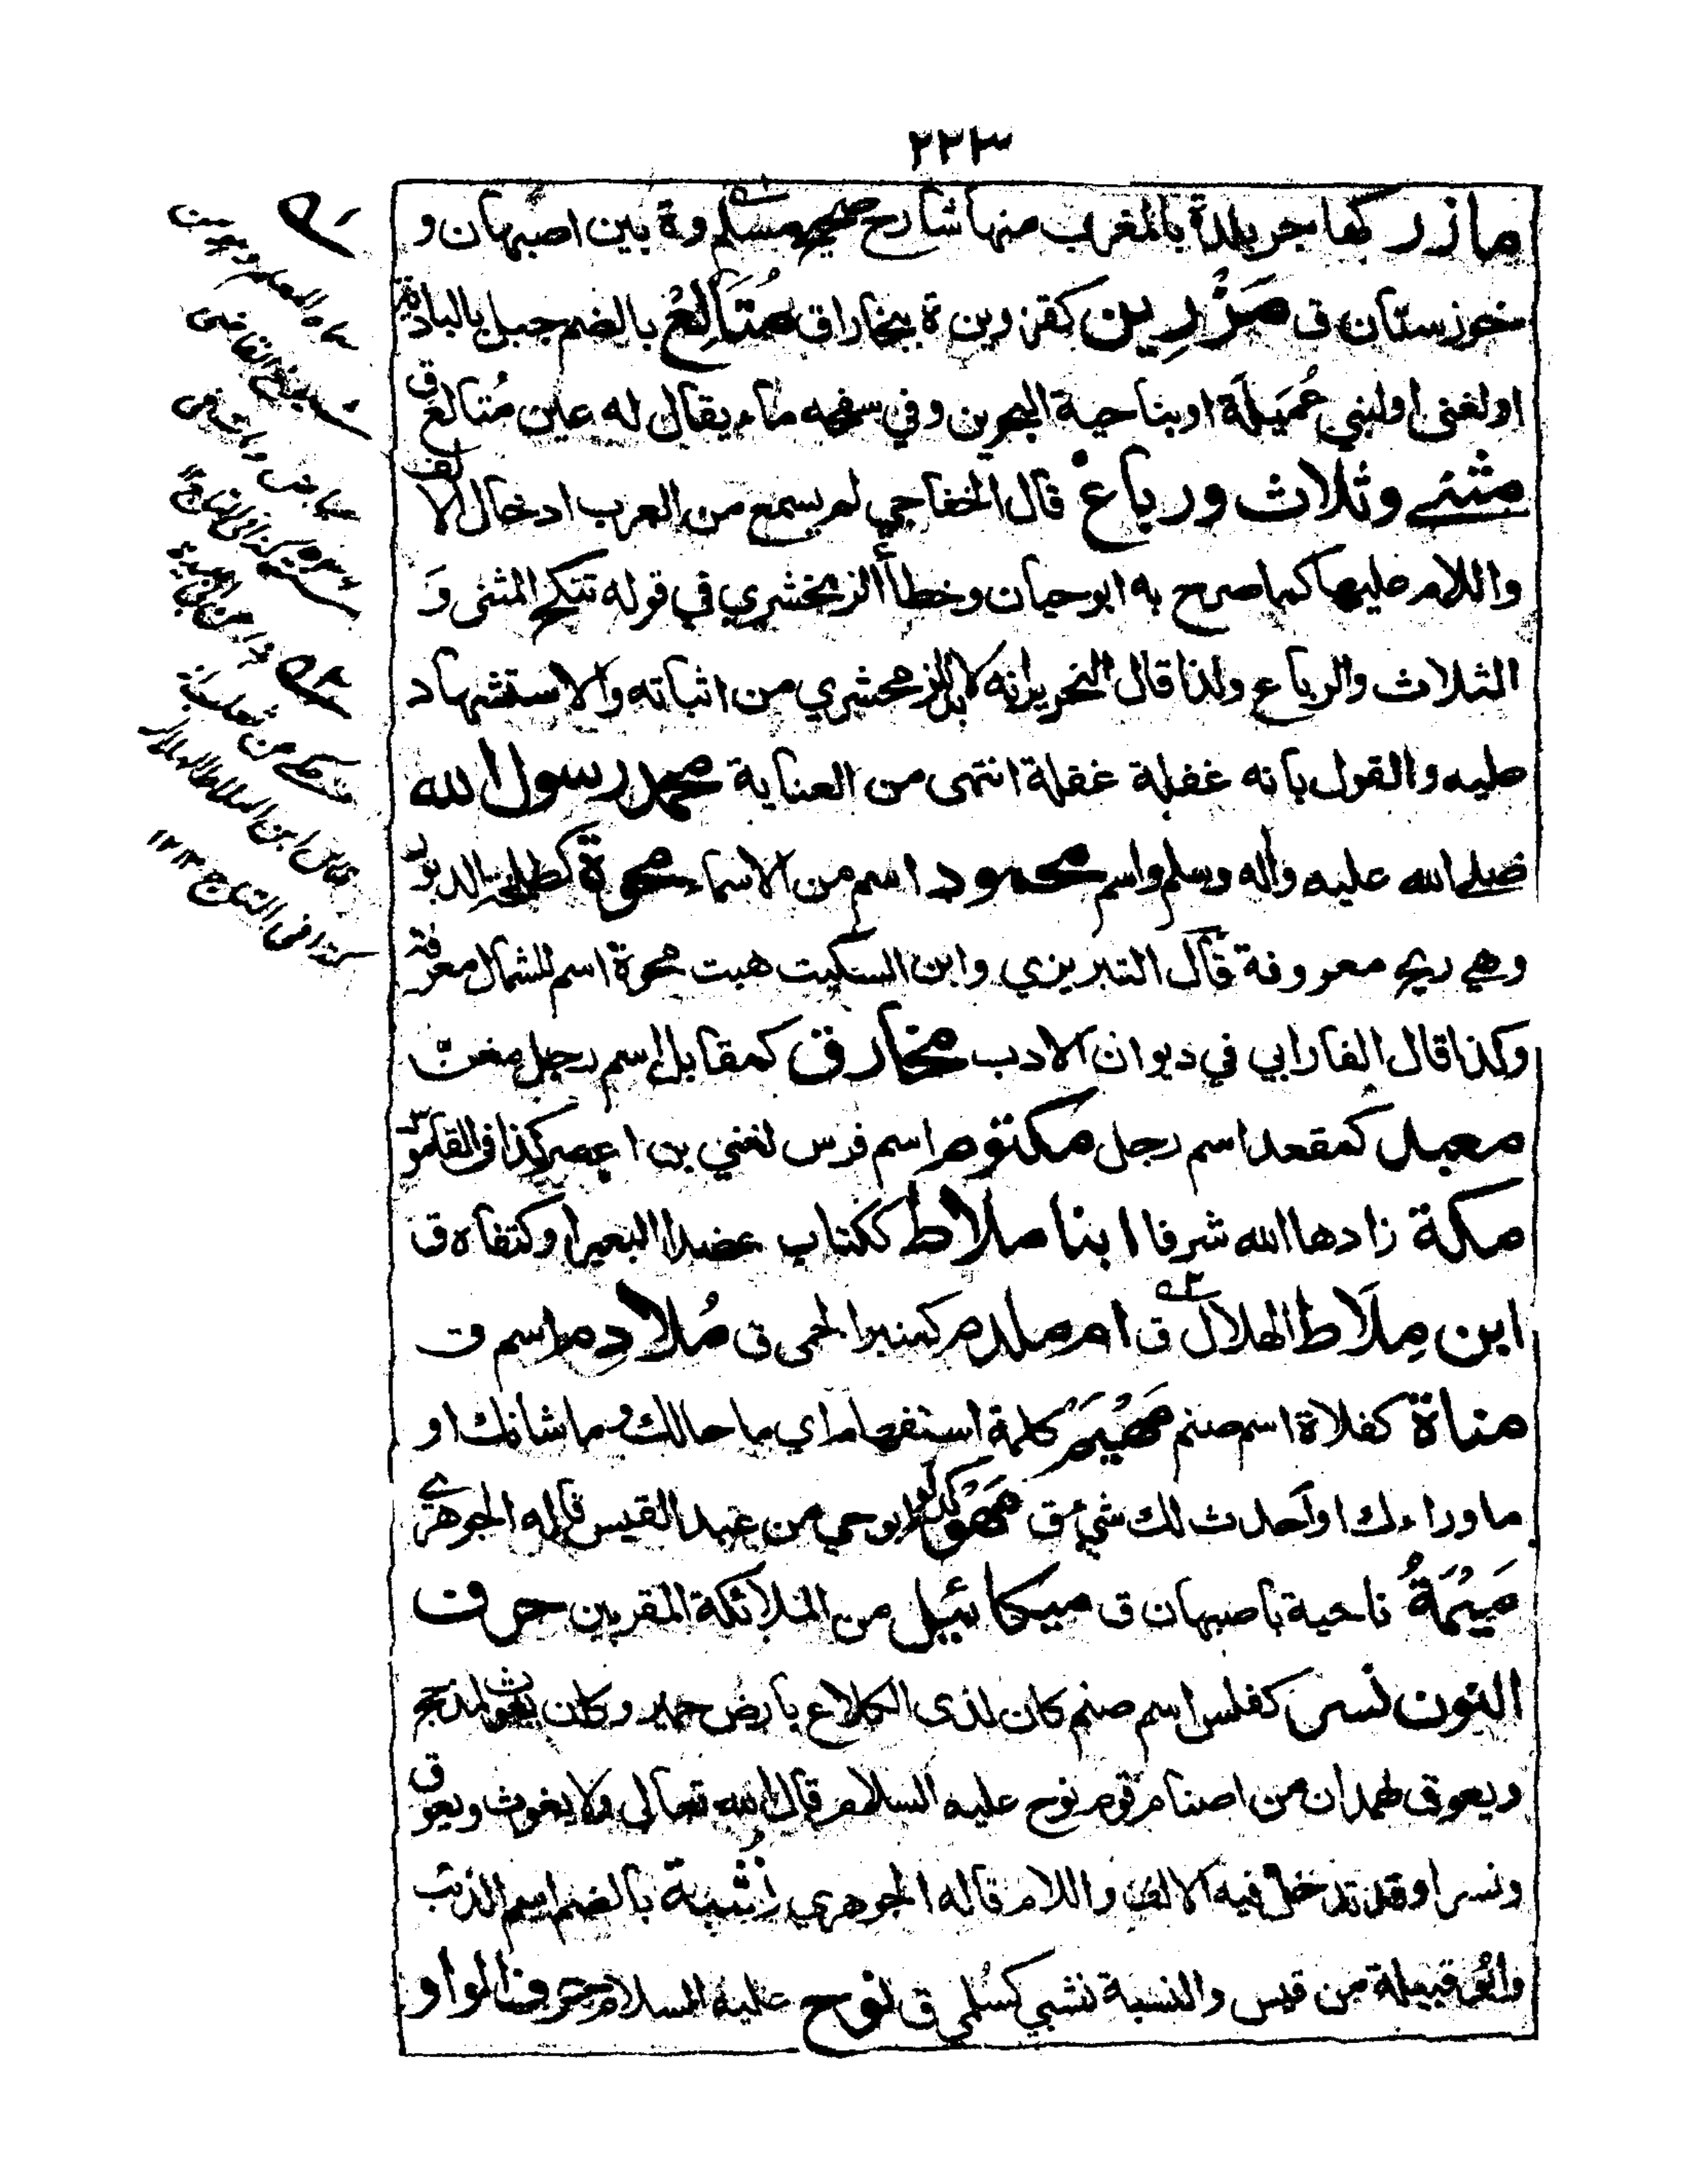 ٢٢٣
مازر كهاجر بلدة بالمغرب منها شارح صحيح مسلم وة بين اصبهان و
خوزستان ق مَزْرِين كقزوين ة ببخارا ق مُتَالِعُ بالضم جبل بالبادية
اولغنى اولبني عُمَيلَة اوبناحية البحرين وفي سفحه ماء يقال له عين مُتالع ق
مثنے وثلاث ورباع قال الخفاجي لم يسمع من العرب ادخال الالف
واللام عليها كما صرح به ابوحيان وخطأ الزمخشري في قوله تنكح المثنى وَ
الثلاث والرباع ولذا قال النحرير انه لابد للزمخشري من اثباته والاستشهاد
عليه والقول بانه غفلة غفلة انتهى من العناية محمد رسول الله
صلے الله عليه وأله وسلم واسم محمود اسم من الاسماء محوة كطلحة الدبور
وهي ريح معروفة قال التبريزي وابن السكيت هبت محوة اسم للشمال معرفة
وكذا قال الفارابي في ديوان الادب مخارق كمقابل اسم رجل مغنّ
معبد كمقعد اسم رجل مكتوم اسم فرس لغني بن اعصر كذا فى القاموس
مكة زادها الله شرفا ابنا ملاط ككتاب عضدا البعير او كتفاه ق
ابن مِلَاط الهلال ق ام ملدم كمنبر الحمى ق مُلادِم اسم ق
مناة كفلاة اسم صنم مَهْيَمْ كلمة استفهام اي ما حالك وما شانك او
ما وراءك او أحدث لك شئ ق مَهْوٌ كدلو ابوحي من عبد القيس قاله الجوهرے
مَيْمَةُ ناحية باصبهان ق ميكائيل من الملائكة المقربين حرف
النون نسر كفلس اسم صنم كان لذى الكلاع بارض حمير وكان يغوث لمذحج
ويعوق لهمدان من اصنام قوم نوح عليه السلام قال الله تعالى ولا يغوث ويعوق
ونسرا وقد تدخل فيه الالف واللام قاله الجوهري نُشْبة بالضم اسم الذئب
وابو قبيلة من قيس والنسبة نشبي كسُلمي ق نوح عليه السلام حرف الواو